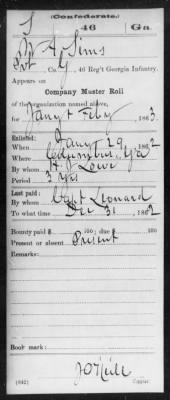 (Confederate.)
S 46 Ga.
A. Sims
Pvt, Co. G, 46 Reg't Georgia Infantry.
Appears on
Company Muster Roll
of the organization named above,
for Jany & Feby, 1863.
Enlisted:
When Jany 29, 1862
Where Columbus, Ga
By whom Lowe
Period 3 yrs
Last paid:
By whom Capt Leonard
To what time Dec 31, 1862
Bounty paid $ 100; due $ 100
Present or absent Present
Remarks:
Book mark:
(642) Copyist.